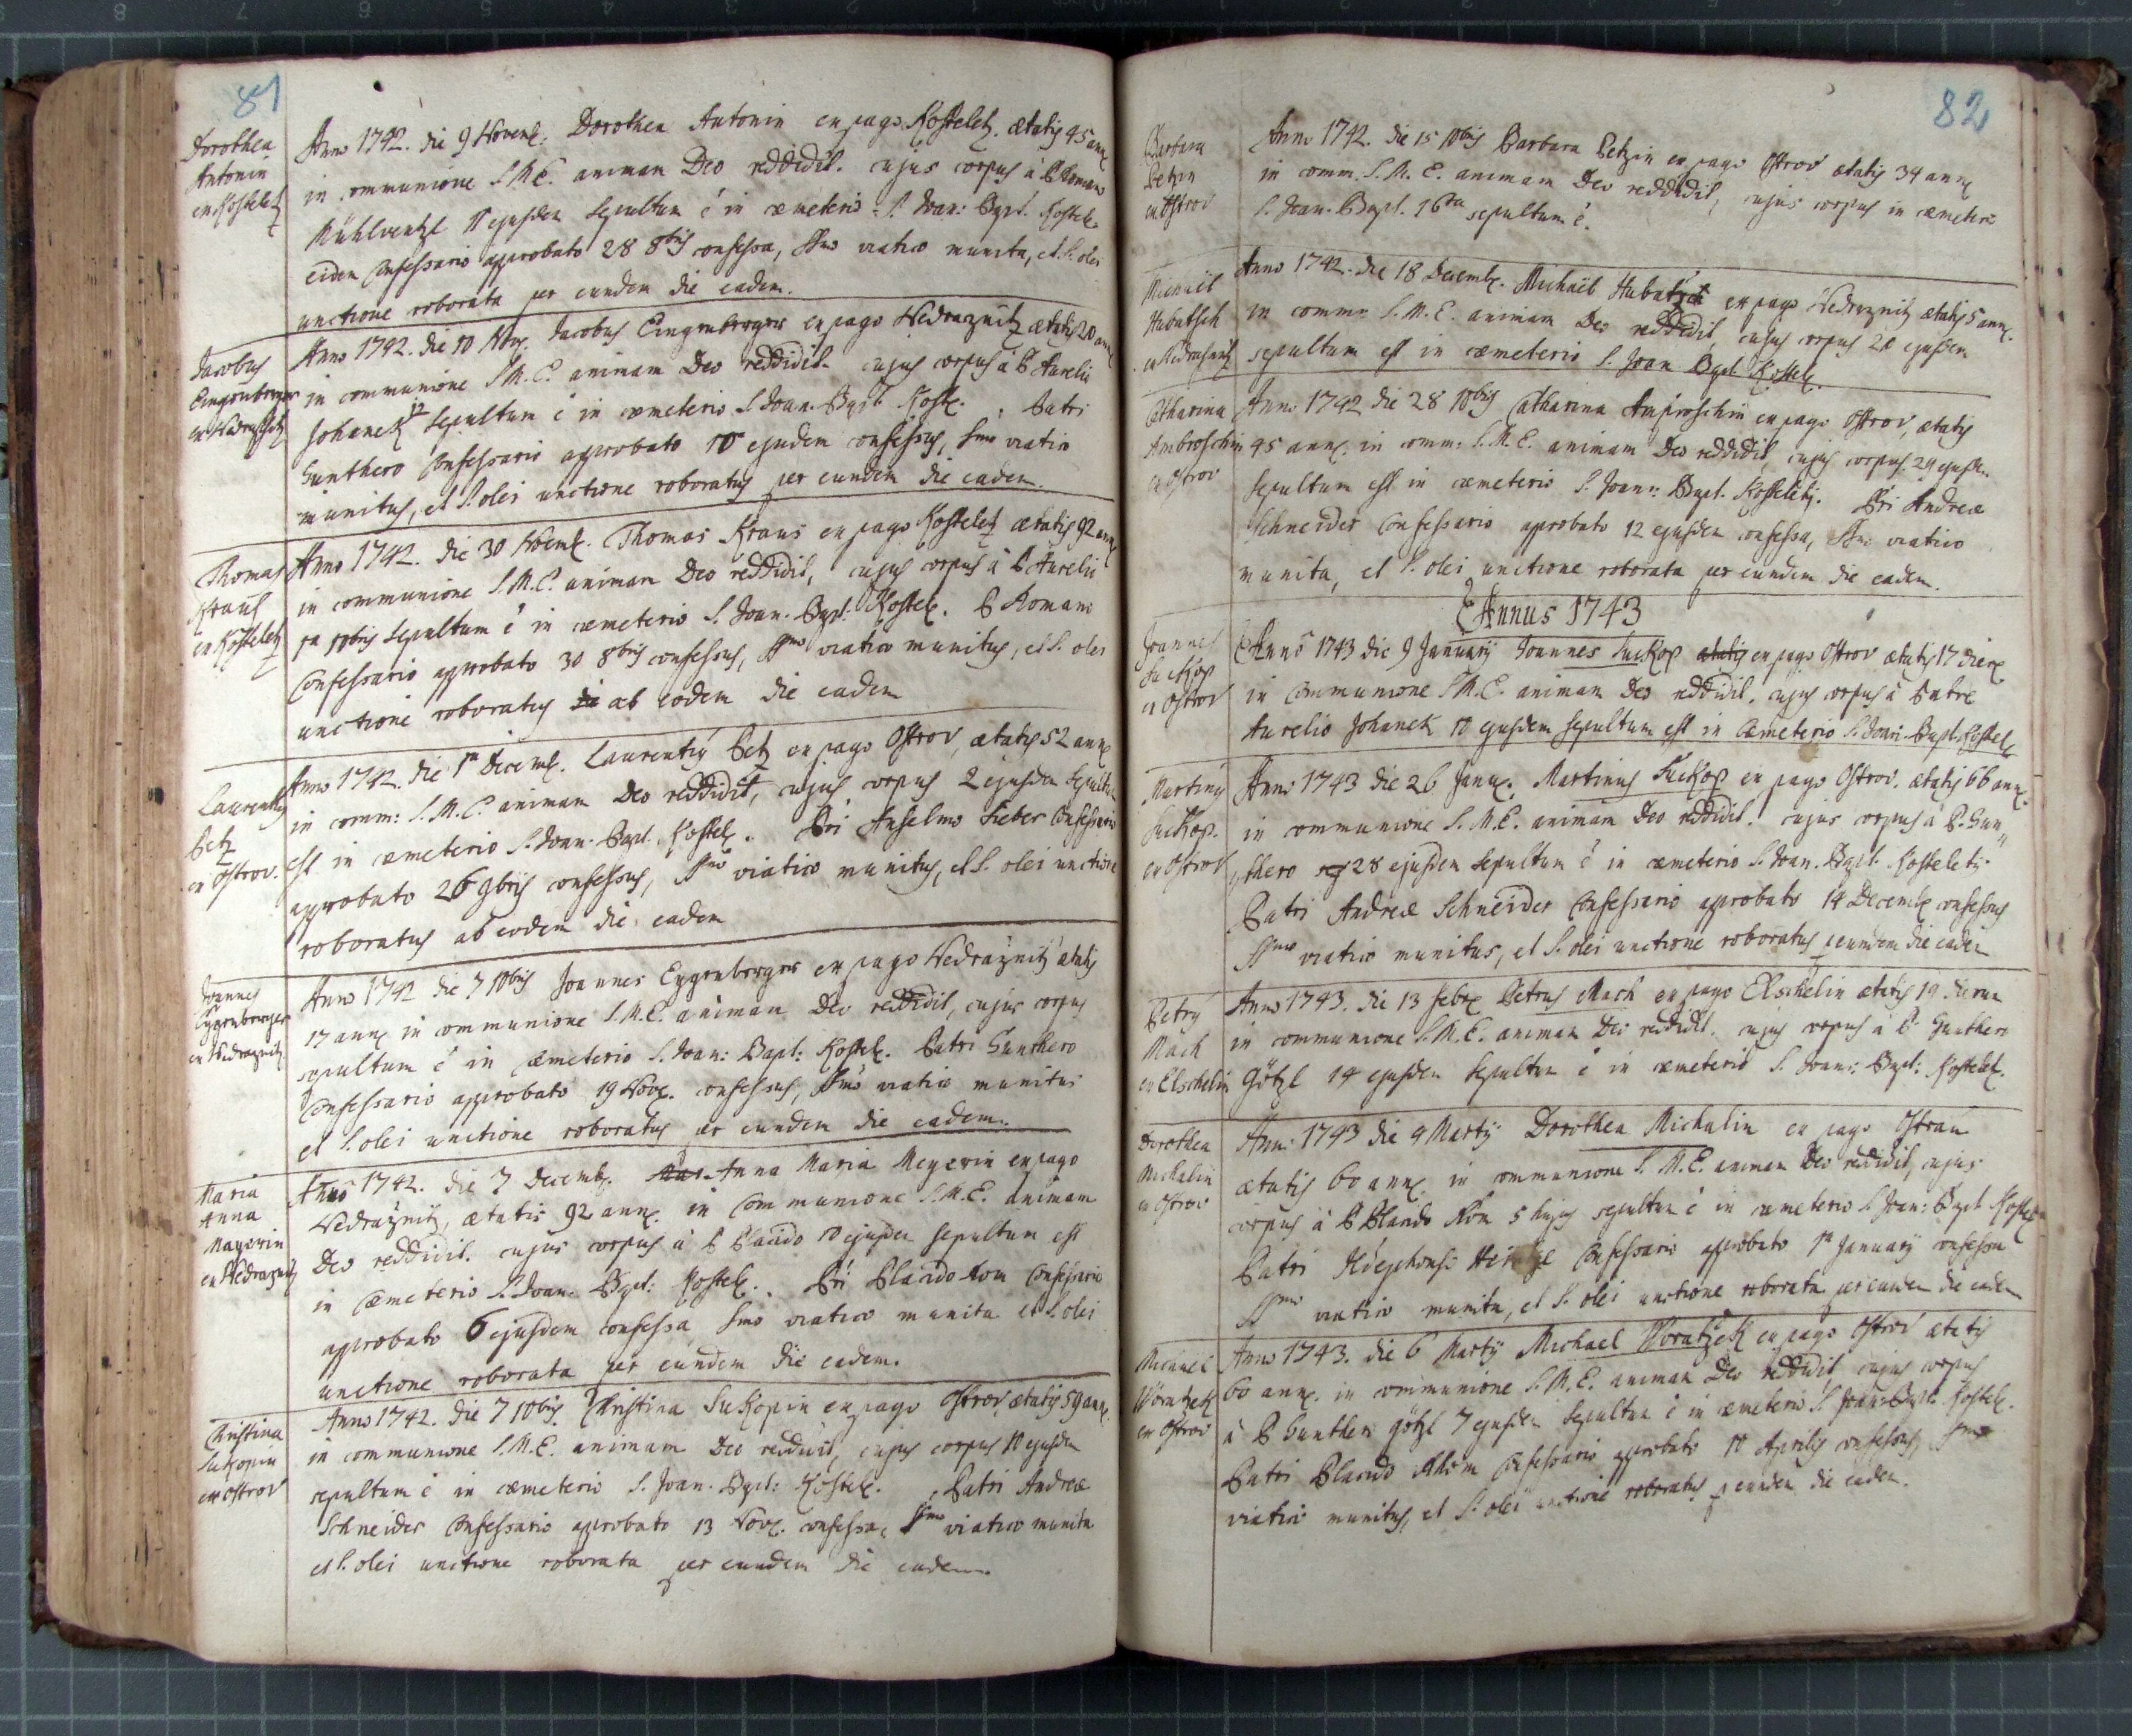 81
Dorothea
Antonin
ex Kosteletz
Anno 1742. die 9 Novemb. Dorothea Antonin ex pago Kosteletz. ætatis 45 ann
in communione S.M.E. animam Deo reddidit. cujus corpus à P. Romano
Mühlwentzl 11 ejusdem sepultum ē in cœmeterio S. Joan: Bapt. Kostele.
eidem confessario approbato 28 8bris confessa, SSmo viatico munita, et S. olei
unctione roborata per eundem die eadem.
Jacobus
Eingenberger
ex Wedraznitz
Anno 1742. die 10 Nov. Jacobus Eingenberger ex pago Wedraznitz ætatis 20 ann
in communione S.M.E. animam Deo reddidit. cujus corpus à P. Aurelio
Johanek 12 sepultum ē in cœmeterio S. Joan. Bapt. Koste. Patri
Gunthero Confessario approbato 10 ejusdem confessus, Smo viatico
munitus, et S. olei unctione roboratus per eundem die eadem.
Thomas
Kraus
ex Kosteletz
Anno 1742. die 30 Novemb. Thomas Kraus ex pago Kosteletz ætatis 92 ann
in communione S.M.E. animam Deo reddidit, cujus corpus à P. Aurelio
1a 10bris sepultum ē in cœmeterio S. Joan. Bapt. Kostele. P. Romano
Confessario approbato 30 8bris confessus, SSmo viatico munitus, et S. olei
unctione roboratus ab eodem die eadem
Laurentius
Petz
ex Ostrov.
Anno 1742. die 1a Decemb. Laurentius Petz ex pago Ostrov, ætatis 52 ann
in comm: S.M.E. animam Deo reddidit, cujus corpus 2 ejusdem sepultum
est in cœmeterio S. Joan. Bapt. Kostele. Pri Anselmo Sieber Confessario
approbato 26 9bris confessus, SSmo viatico munitus, et S. olei unctione
roboratus ab eodem die eadem
Joannes
Eygenberger
ex Wedraznitz
Anno 1742 die 7 10bris Joannes Eygenberger ex pago Wedraznitz ætatis
17 ann in communione S.M.E. animam Deo reddidit, cujus corpus
sepultum ē in cœmeterio S. Joan: Bapt: Kostele. Patri Gunthero
Confessario approbato 19 Nove. confessus, SSmo viatico munitus
et S. olei unctione roboratus per eundem die eadem.
Maria
Anna
Mayerin
ex Wedraznitz
Anno 1742. die 7 Decemb. Anna Maria Meyerin ex pago
Wedraznitz, ætatis 92 ann. in Communione S.M.E. animam
Deo reddidit. cujus corpus à P. Placido 10 ejusdem sepultum est
in Cœmeterio S. Joan. Bapt: Kostele. Pri Placido Rom Confessario
approbato 6 ejusdem confessa Smo viatico munita et S. olei
unctione roborata per eundem die eadem.
Christina
Sukopin
ex Ostrov
Anno 1742. die 7 10bris. Christina Sukopin ex pago Ostrov, ætatis 59 ann.
in communione S.M.E. animam Deo reddidit, cujus corpus 10 ejusdem
sepultum ē in cœmeterio S. Joan. Bapt: Kostele. Patri Andreæ
Schneider Confessario approbato 13 Nove. confessa, SSmo viatico munita
et S. olei unctione roborata per eundem die eadem.
82
Barbara
Petzin
ex Ostrov
Anno 1742. die 15 10bris Barbara Petzin ex pago Ostrov ætatis 34 ann
in comm. S.M.E. animam Deo reddidit, cujus corpus in cœmeterio
S. Joan. Bapt. 16ta sepultum ē.
Michael
Hubatsch
ex Wedraznitz
Anno 1742. die 18 Decemb. Michael Hubatsch ex pago Wedraznitz ætatis 5 ann.
in comm. S.M.E. animam Deo reddidit, cujus corpus 20 ejusdem
sepultum est in cœmeterio S. Joan Bapt Kostele.
Catharina
Ambroschin
ex Ostrov
Anno 1742 die 28 10bris Catharina Ambroschin ex pago Ostrov, ætatis
45 ann. in comm: S.M.E. animam Deo reddidit, cujus corpus 29 ejusdem
sepultum est in cœmeterio S. Joan: Bapt. Kosteletz. Pri Andreæ
Schneider Confessario aprobato 12 ejusdem confessa, SSmo viatico
munita, et S. olei unctione roborata per eundem die eadem.
Annus 1743
Joannes
Suckop
ex Ostrov
Anno 1743 die 9 January Joannes Suckop ex pago Ostrov ætatis 17 dier
in communione S.M.E. animam Deo reddidit. cujus corpus à Patre
Aurelio Johanek 10 ejusdem sepultum est in Cœmeterio S. Joan. Bapt. Kostele
Martinus
Suckop.
ex Ostrov
Anno 1743 die 26 Janu. Martinus Suckop ex pago Ostrov. ætatis 66 ann.
in communione S.M.E. animam Deo reddidit. cujus corpus à P. Gun„
„thero 28 ejusdem sepultum ē in cœmeterio S. Joan. Bapt. Kosteletz.
Patri Andreæ Schneider Confessario approbato 14 Decemb confessus
SSmo viatico munitus, et S. olei unctione roboratus p eundem die eadem
Petrus
Mach
ex Elschelin
Anno 1743. die 13 Febr Petrus Mach ex pago Elschelin ætatis 19 dierum
in communione S.M.E. animam Deo reddidit. cujus corpus à P. Gunthero
Götzl 14 ejusdem sepultum ē in cœmeterio S. Joan: Bapt: Kostele.
Dorothea
Michalin
ex Ostrov
Anno 1743 die 4 Marty Dorothea Michalin ex pago Ostrau
ætatis 60 ann. in communione S.M.E. animam Deo reddidit, cujus
corpus à P. Placido Rom 5 hujus sepultum ē in cœmeterio S. Joan: Bapt Kostele
Patri Confessario approbato 1a January confessa
SSmo viatico munita, et S. olei unctione roborata per eundem die eadem
Michael
Woratzek
ex Ostrov
Anno 1743. die 6 Marty Michael Woratzek ex pago Ostrov ætatis
60 ann. in communione S.M.E. animam Deo reddidit, cujus corpus
à P. Gunthero Götzl 7 ejusdem sepultum ē in cœmeterio S. Joan: Bapt. Kostele.
Patri Placido Rhom Confessario aprobato 10 Aprilis confessus, Smo
viatico munitus, et S. olei unctione roboratus p eundem die eadem.